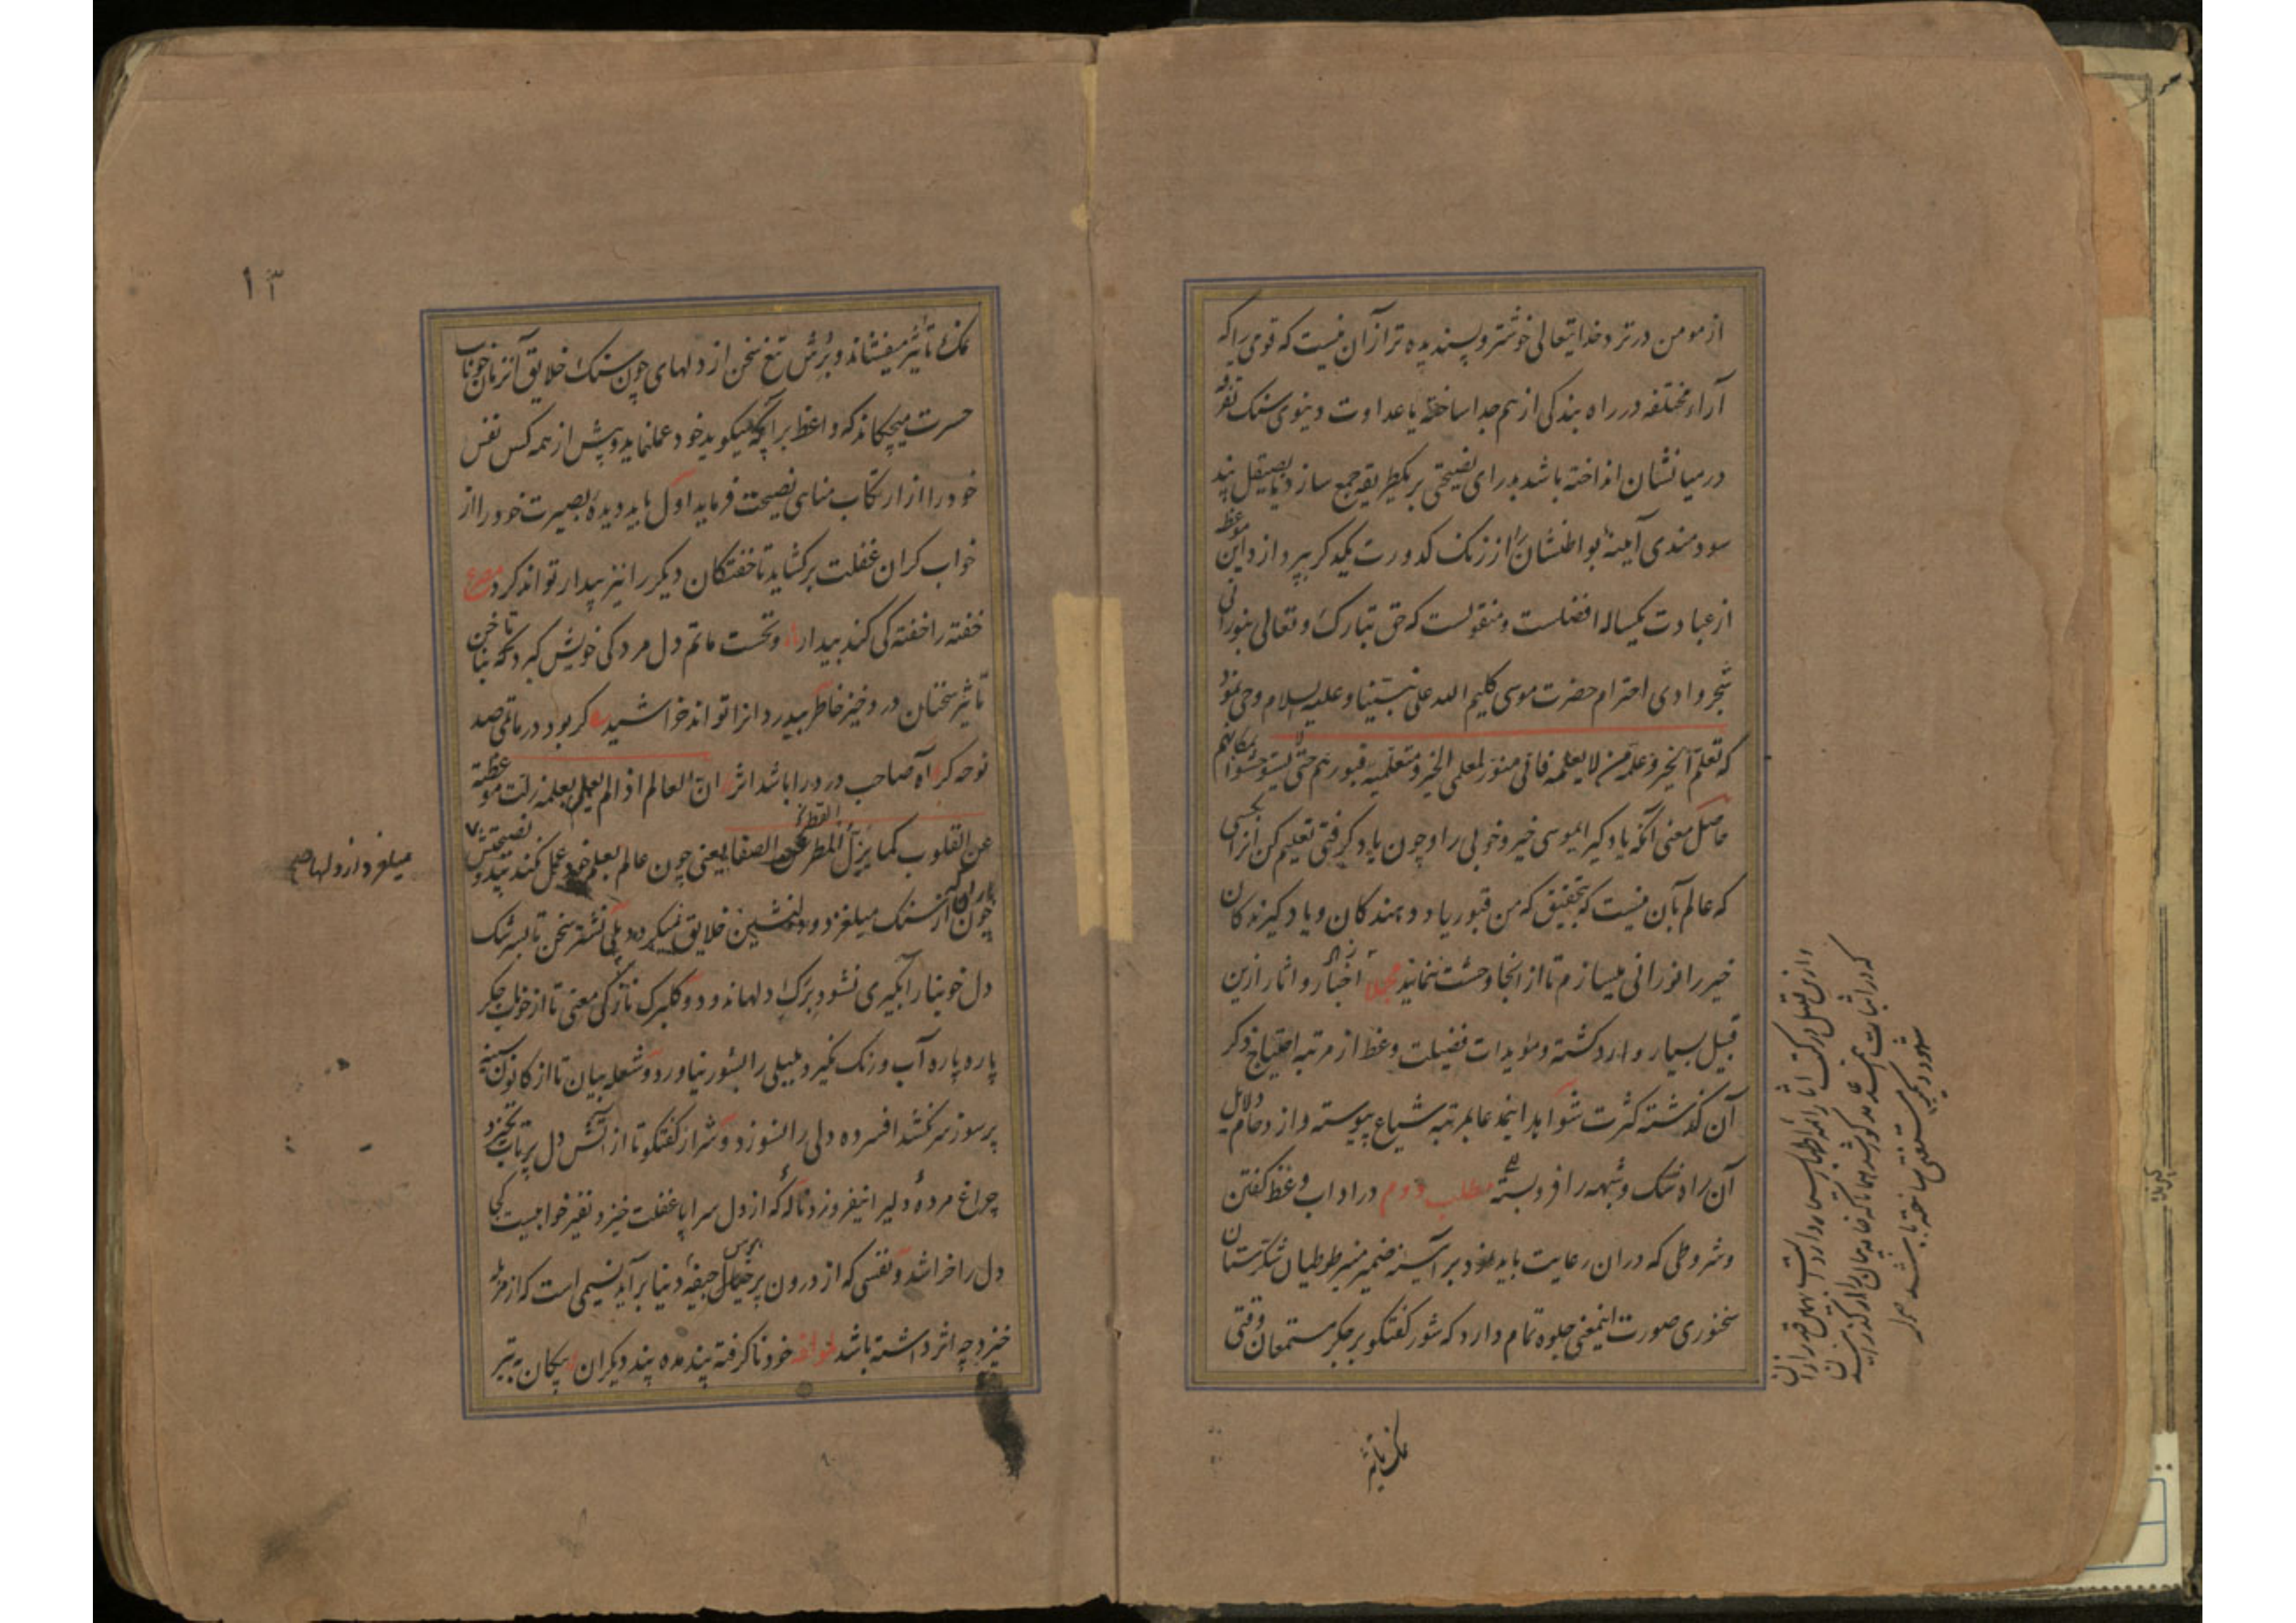 از مومن در نزد خدایتعالی خوشتر و پسندیده تر از آن نیست که قومی را که
آراء مختلفه در راه بندگی از هم جدا ساخته یا عداوت دنیوی سنک تفرقه
در میانشان انداخته باشد برای نصیحتی بر یکطریقه جمع سازد یا بصیقل پند
سودمندی آینهٔ بواطنشان از زنک کدورت یکدکر بپردازد و این موعظه
از عبادت یکساله افضلست و منقولست که حق تبارک و تعالی بنورانی
شجر وادی احترام حضرت موسی کلیم الله علی نبینا و علیه السلام وحی نمود
که تعلم الخیر و علمه من لا یعلمه فانی منور لمعلمی الخیر و متعلمیه قبورهم حتی لا یستوحشوا بمکانهم
حاصل معنی آنکه یاد کیر ایموسی خیر و خوبی را و چون یاد کرفتی تعلیم کن آنرا بکسی
که عالم بآن نیست که بتحقیق که من قبور یاد دهندکان و یاد کیرندکان
خیر را نورانی میسازم تا از آنجا وحشت ننمایند مجملا اخبار و اثار ازین
قبیل بسیار وارد کشته و مؤیدات فضیلت وعظ از مرتبه احتیاج ذکر
آن کذشته کثرت شواهد اینمدعا بمرتبه شیاع پیوسته و ازدحام دلایل
آن راه شک و شبهه را فرو بسته مطلب دوم در اداب وعظ کفتن
و شروطی که در ان رعایت باید نمود بر آینه ضمیر منیر طوطیان شکرستان
سخنوری صورت اینمعنی جلوه تمام دارد که شور کفتکو بر جکر مستمعان وقتی
نمک تاثیر
۱۳
نمک تاثیر میفشاند و برش تیغ سخن از دلهای چون سنک خلایق آنزمان خوناب
حسرت میچکاند که واعظ بر آنچه میکوید خود عمل نماید و پیش از همه کس نفس
خود را از ارتکاب مناهی نصیحت فرماید اول باید دیدهٔ بصیرت خود را از
خواب کران غفلت برکشاید تا خفتکان دیکر را نیز بیدار تواند کرد مصرع
خفته را خفته کی کند بیدار و نخست ماتم دل مردکی خویش کیرد تا بناخن
تاثیر سخنان درد خیز خاطر بیدردانرا تواند خراشید ع کر بود در ماتمی صد
نوحه کر آه صاحب درد را باشد اثر ان العالم اذا لم یعمل بعلمه زلت موعظته
عن القلوب کما یزل المطر عن الصفا یعنی چون عالم بعلم خود عمل نکند پند و نصیحتش
چون باران از سنک میلغزد و دلنشین خلایق نمیکردد بلی نشتر سخن تا بسرشک
دل خونبار آبکیری نشود برک دلها ندود و کلبرک نازکی معنی تا از خوناب جکر
پاره پاره آب و رنک نکیرد بلبلی را بشور نیاورد و شعله بیان تا از کانون سینه
پر سوز سر نکشد افسرده دلی را نسوزد و شرار کفتکو تا از آتش دل پر تاب نخیزد
چراغ مرده دلیرا نیفروزد نالهٔ که از دل سراپا غفلت خیزد نفیر خوابیست کجا
دل را خراشد و نفسی که از درون پر خیال جیفهٔ دنیا برآید نسیمی است که از مزبله
خیزد چه اثر داشته باشد لمؤلفه خود ناکرفته پند مده پند دیکران پیکان به تیر
میلغزد از دلها صح